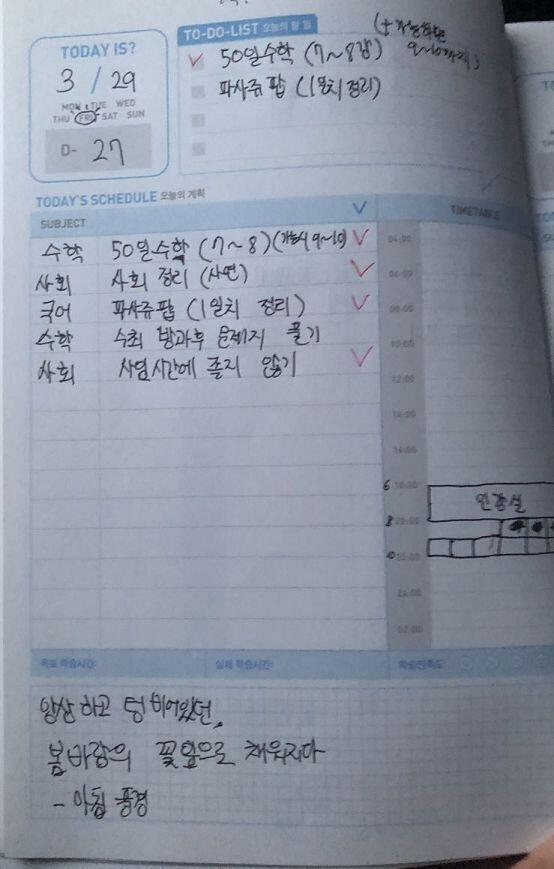 TO-DO-LIST 오늘의 할 일
TODAY IS?
3 / 29
MON TUE WED
THU FRI SAT SUN
D- 27
(+ 가능하면
9~10까지)
50일수학 (7~8강)
파사쥬 팝 (1일치 정리)
TODAY'S SCHEDULE 오늘의 계획
SUBJECT
TIMETABLE
수학 50일수학 (7~8) (가능시 9~10)
사회 사회 정리 (사면)
국어 파사쥬 팝 (1일치 정리)
수학 수최 방과후 문제지 풀기
사회 사임시간에 졸지 않기
04:00
06:00
08:00
10:00
12:00
14:00
16:00
6 18:00
인강실
8 20:00
10 22:00
24:00
02:00
목표 학습시간:
실제 학습시간:
학습만족도:
앙상하고 텅 비어있던,
봄바람의 꽃잎으로 채워지다
- 아침 풍경